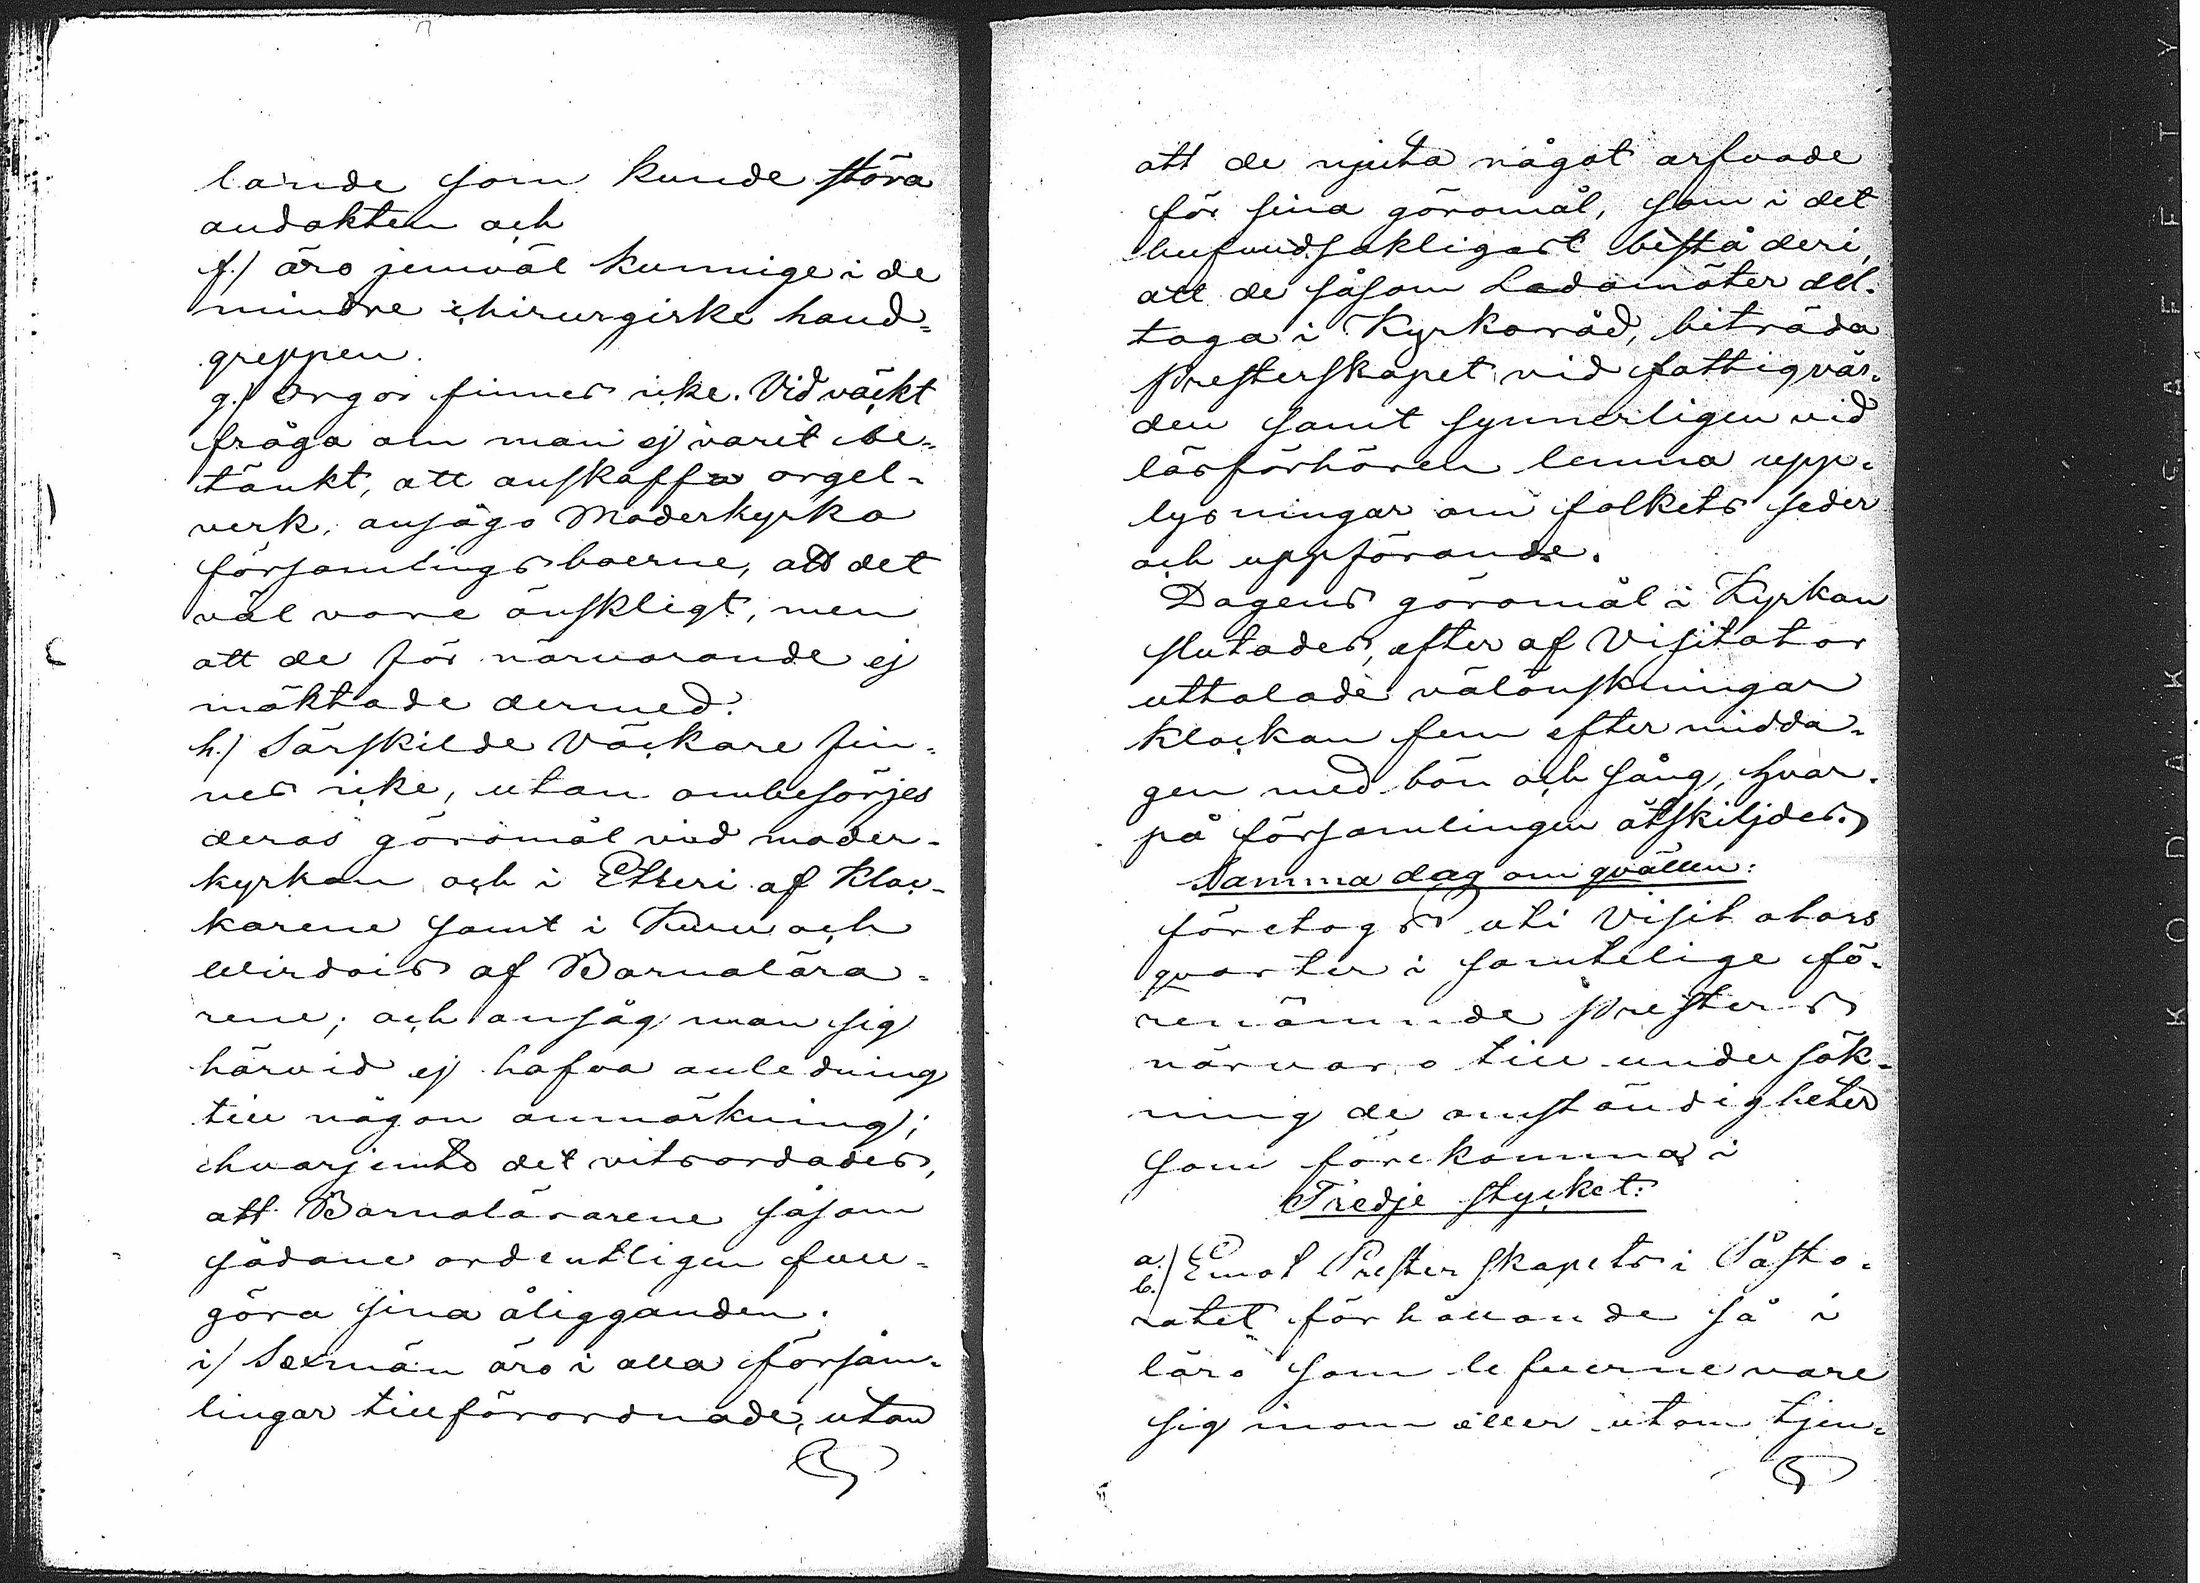 lande som kunde störa
andakten och
f.) äro jemväl kunnige i de
mindre chirurgiske hand-
greppen.
g.) Orgor finnes icke. Vid väckt
fråga om man ej varit be-
tänkt, att anskaffa orgel-
verk, ansågo Moderkyrko
församlingsboerne, att det
väl vore önskligt, men
att de för närvarande ej
mäktade dermed.
h.) Särskilde Väckare fin-
nes icke, utan ombesörjes
deras göromål vid moder-
kyrkan och i Etseri af Kloc-
karene samt i Kuru och
Wirdois af Barnalära-
rene; och ansåg man sig
härvid ej hafva anledning
till någon anmärkning;
hvarjemte det vitsordades,
att Barnalärarene såsom
sådane ordentligen full-
göra sina åligganden.
i) Sexmän äro i alla försam-
lingar tillförordnade, utan
att de njuta något arfvode
för sina göromål, som i det
hufvudsakligast bestå deri,
att de såsom Ledamöter del-
taga i Kyrkoråd, biträda
Presterskapet vid fattigvår-
den samt synnerligen vid
läsförhören lemna upp-
lysningar om folkets seder
och uppförande.
Dagens göromål i Kyrkan
slutades, efter af Visitator
uttalade välönskningar
klockan fem efter midda-
gen med bön och sång, hvar-
på församlingen åtskiljdes.
Samma dag om qvällen:
företogs uti Visitators
qvarter i samtelige fö-
renämnde Presters
närvaro till undersök-
ning de omständigheter
som förekomma i
Tredje stycket:
a.) Emot Presterskapets i Pasto-
b.)
ratet förhållande så i
läro som lefverne vare
sig inom eller utom tjen-
KODAK SAFETY